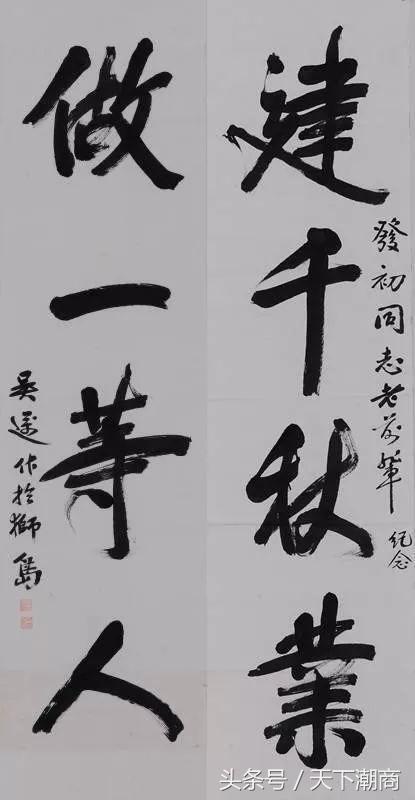 建千秋業
發初同志老前輩
紀念
做一等人
吳作於獅島
头条号 / 天下潮商